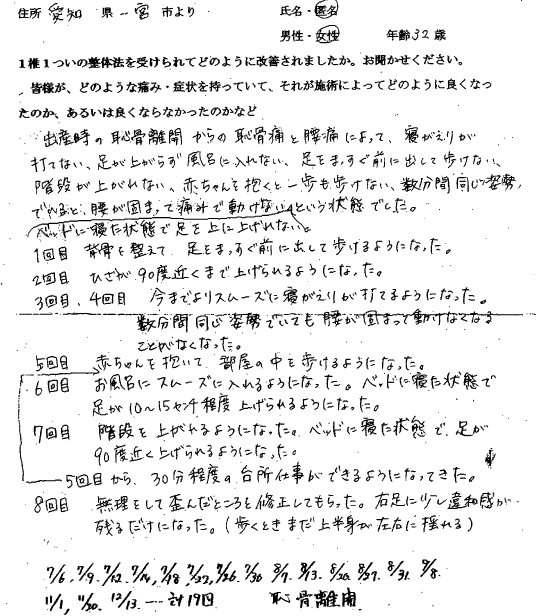 住所 愛知 県 一宮 市より 氏名・匿名
男性・女性 年齢32歳
1椎1つの整体法を受けられてどのように改善されましたか。お聞かせください。
皆様が、どのような痛み・症状を持っていて、それが施術によってどのように良くなっ
たのか、あるいは良くならなかったのかなど
出産時の恥骨離開からの恥骨痛と腰痛によって、寝がえりが
打てない、足が上がらず風呂に入れない、足をまっすぐ前に出して歩けない、
階段が上がれない、赤ちゃんを抱くと一歩も歩けない、数分間同じ姿勢
でいると、腰が固まって痛みで動けないという状態でした。
ベッドに寝た状態で足を上に上げれない。
1回目 背骨を整えて、足をまっすぐ前に出して歩けるようになった。
2回目 ひざが90度近くまで上げられるようになった。
3回目、4回目 今までよりスムーズに寝がえりが打てるようになった。
数分間同じ姿勢でいても腰が固まって動けなくなる
ことがなくなった。
5回目 赤ちゃんを抱いて、部屋の中を歩けるようになった。
6回目 お風呂にスムーズに入れるようになった。ベッドに寝た状態で
足が10〜15センチ程度上げられるようになった。
7回目 階段を上がれるようになった。ベッドに寝た状態で、足が
90度近く上げられるようになった。
5回目から、30分程度の台所仕事ができるようになってきた。
8回目 無理をして歪んだところを修正してもらった。右足に少し違和感が
残るだけになった。(歩くときまだ上半身が左右に揺れる)
7/6、7/9、7/12、7/14、7/18、7/22、7/26、7/30、8/7、8/13、8/20、8/27、8/31、9/8、
11/1、11/20、12/13 ---- 計19回 恥骨離開